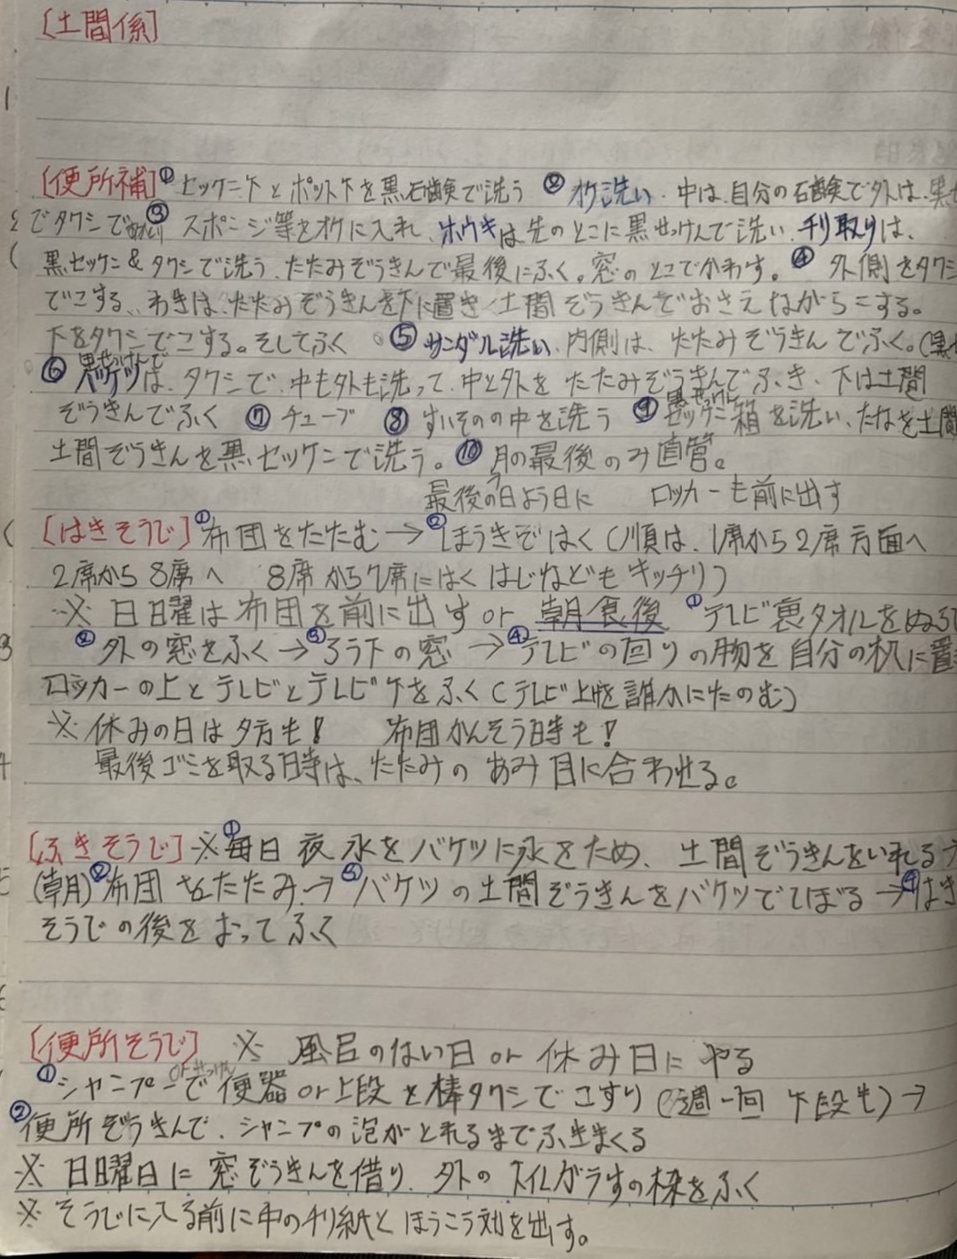 [土間係]
1
[便所補]① セッケン下とポット下を黒石鹸で洗う ② オケ洗い. 中は、自分の石鹸で外は、黒セ
2 でタワシで ③ スポンジ等をオケに入れ、ホウキは先のとこに黒せっけんで洗い、チリ取りは、
黒セッケン&タワシで洗う、たたみぞうきんで最後にふく。窓のとこでかわす。④ 外側をタワシ
でこする、わきは、たたみぞうきんを下に置き、土間ぞうきんでおさえながらこする。
下をタワシでこする。そしてふく ⑤ サンダル洗い、内側は、たたみぞうきんでふく。(黒セ
⑥ 黒せっけんで バケツは、タワシで、中も外も洗って、中と外をたたみぞうきんでふき、下は土間
ぞうきんでふく ⑦ チューブ ⑧ すいそのの中を洗う ⑨ 黒せっけん セッケン箱を洗い、たなを土間
土間ぞうきんを黒セッケンで洗う。⑩ 月の最後のみ直管。
最後の日よう日に ロッカーも前に出す
[はきそうじ]① 布団をたたむ→② ほうきではく(順は、1席から2席方面へ
2席から8席へ 8席から7席にはく はじなどもキッチリ)
※ 日日曜は布団を前に出す or 朝食後 ① テレビ裏タオルをぬらし
3 ② 外の窓をふく→③ ろう下の窓→④ テレビの回りの物を自分の机に置き
ロッカーの上とテレビとテレビ下をふく(テレビ上を誰かにたのむ)
※ 休みの日は夕方も! 布団かんそう時も!
4 最後ゴミを取る時は、たたみのあみ目に合わせる。
[ふきそうじ]※① 毎日 夜 水をバケツに水をため、土間ぞうきんをいれる
5 (朝)② 布団をたたみ→③ バケツの土間ぞうきんをバケツでしぼる→④ はき
そうじの後をおってふく
6
[便所そうじ] ※ 風呂のない日 or 休み日にやる
① シャンプーで便器 or 上段を棒タワシでこすり(週一回 下段も)→
② 便所ぞうきんで、シャンプの泡がとれるまでふきまくる
※ 日曜日に窓ぞうきんを借り、外の ガラすの枠をふく
※ そうじに入る前に中のチリ紙とほうこう剤を出す。